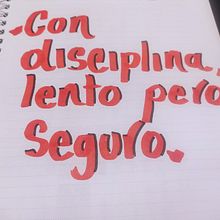 -Con
disciplina,
lento pero
seguro.